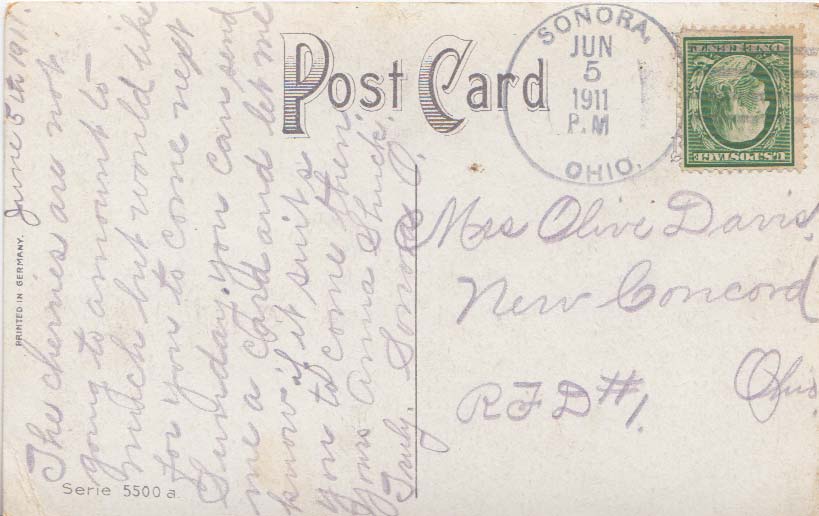 June 5th 1911.
The cherries are not
going to amount to
much but would like
for you to come next
Sunday. you can send
me a card and let me
know if it suits
you to come then.
Yours Anna Shuck.
Truly. Sonora O.
Post Card
SONORA,
JUN
5
1911
P.M
OHIO.
ONE CENT
U.S. POSTAGE
Mrs Olive Davis,
New Concord
Ohio
RFD #1.
PRINTED IN GERMANY.
Serie 5500 a.